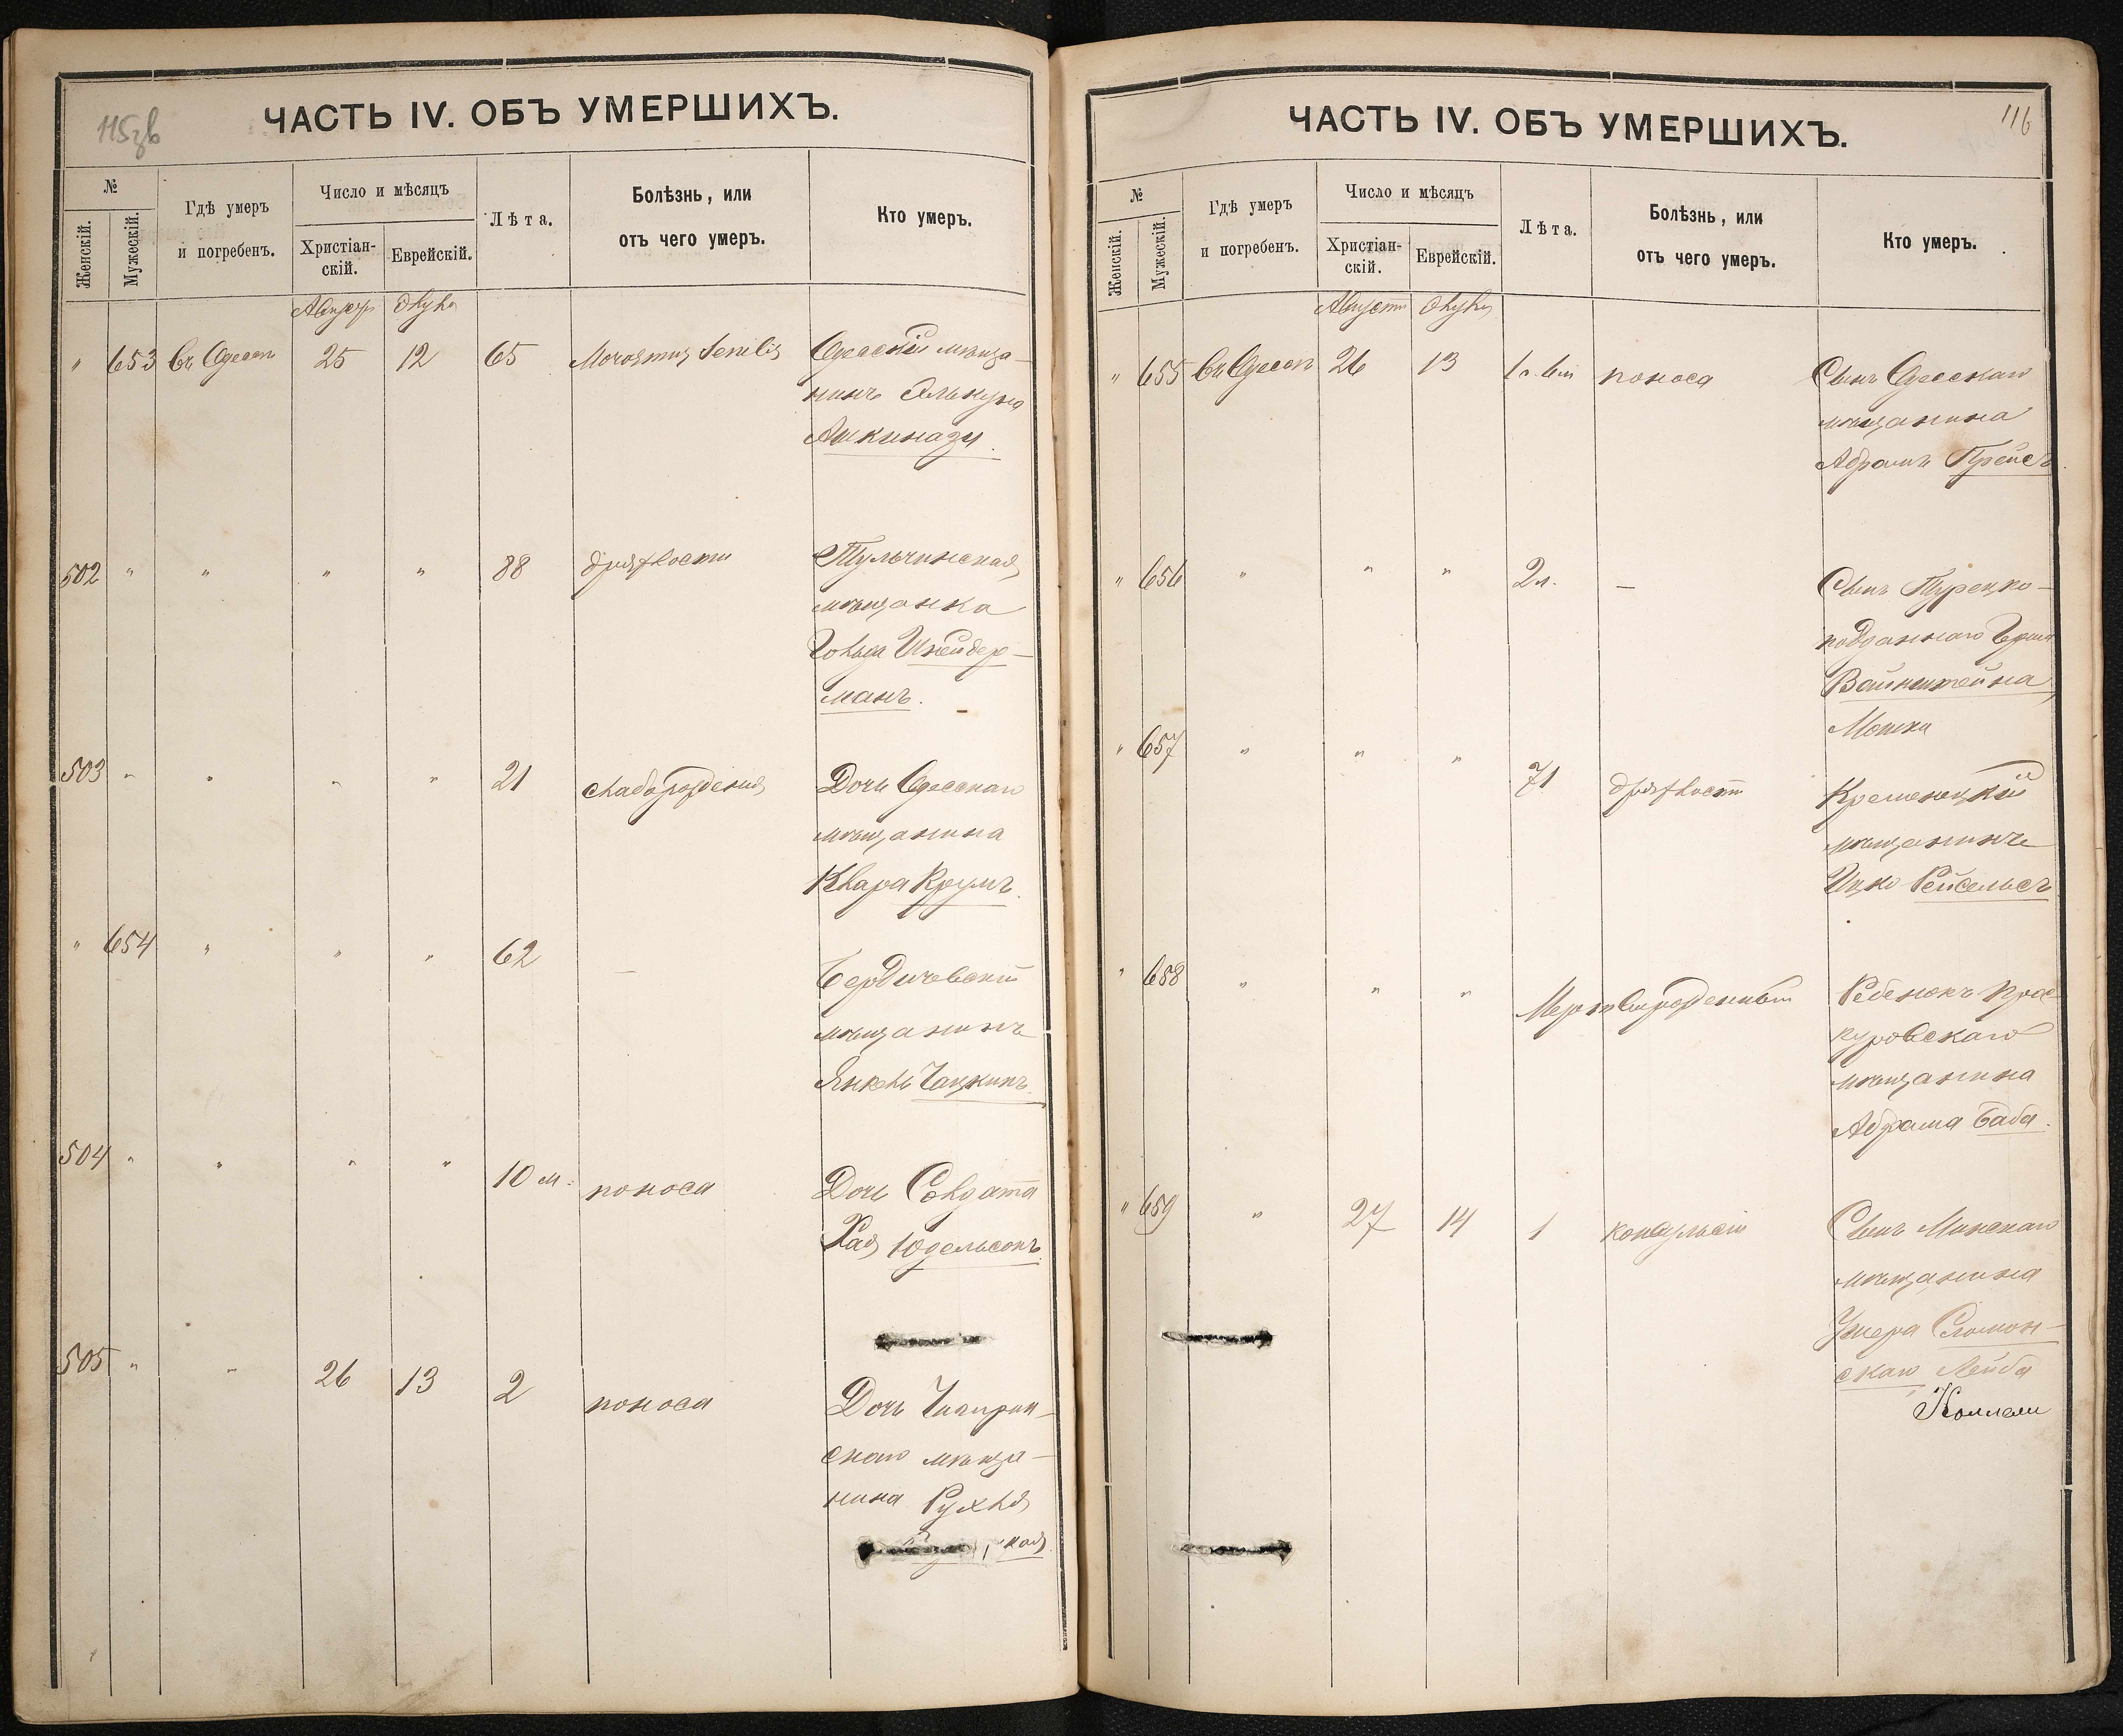 115зв
ЧАСТЬ IV. ОБЪ УМЕРШИХЪ.
№
Женскій.
Мужескій.
Гдѣ умеръ
и погребенъ.
Число и мѣсяцъ
Христіан-
скій.
Еврейскій.
Лѣта.
Болѣзнь, или
отъ чего умеръ.
Кто умеръ.
Августъ Элула
" 653 Въ Одессѣ 25 12 65 Marasmus Senilis Одесскій мѣща-
нинъ Элькуна
Ашкинази.
502 " " " " 88 дряхлости Тульчинская
мѣщанка
Гольда Шнейдер-
манъ.
503 " " " " 21 Дочь Одесскаго
мѣщанина
Клара Крумъ.
" 654 " " " 62 — Бердичевскій
мѣщанинъ
Янкель Чацкинъ.
504 " " " " 10 м. поноса Дочь Солдата
Хая Юдельсонъ.
505 " " 26 13 2 поноса Дочь Чигирин-
скаго мѣща-
нина Рухля
кая.
116
ЧАСТЬ IV. ОБЪ УМЕРШИХЪ.
№
Женскій.
Мужескій.
Гдѣ умеръ
и погребенъ.
Число и мѣсяцъ
Христіан-
скій.
Еврейскій.
Лѣта.
Болѣзнь, или
отъ чего умеръ.
Кто умеръ.
Августъ Элула
" 655 Въ Одессѣ 26 13 1 г. 6 м поноса Сынъ Одесскаго
мѣщанина
Абрамъ Прейсъ.
" 656 " " " 2 л. — Сынъ Турецко-
подданнаго Герша
Вайнштейна,
Мошка
" 657 " " " 71 дряхлости Кременецкій
мѣщанинъ
Ицко Рейсельсъ
" 658 " " " Мертворожденный Ребенокъ Прос-
куровскаго
мѣщанина
Абрама Баба.
" 659 " 27 14 1 конвульсіи Сынъ Минскаго
мѣщанина
Ушера Сломон-
скаго Лейба